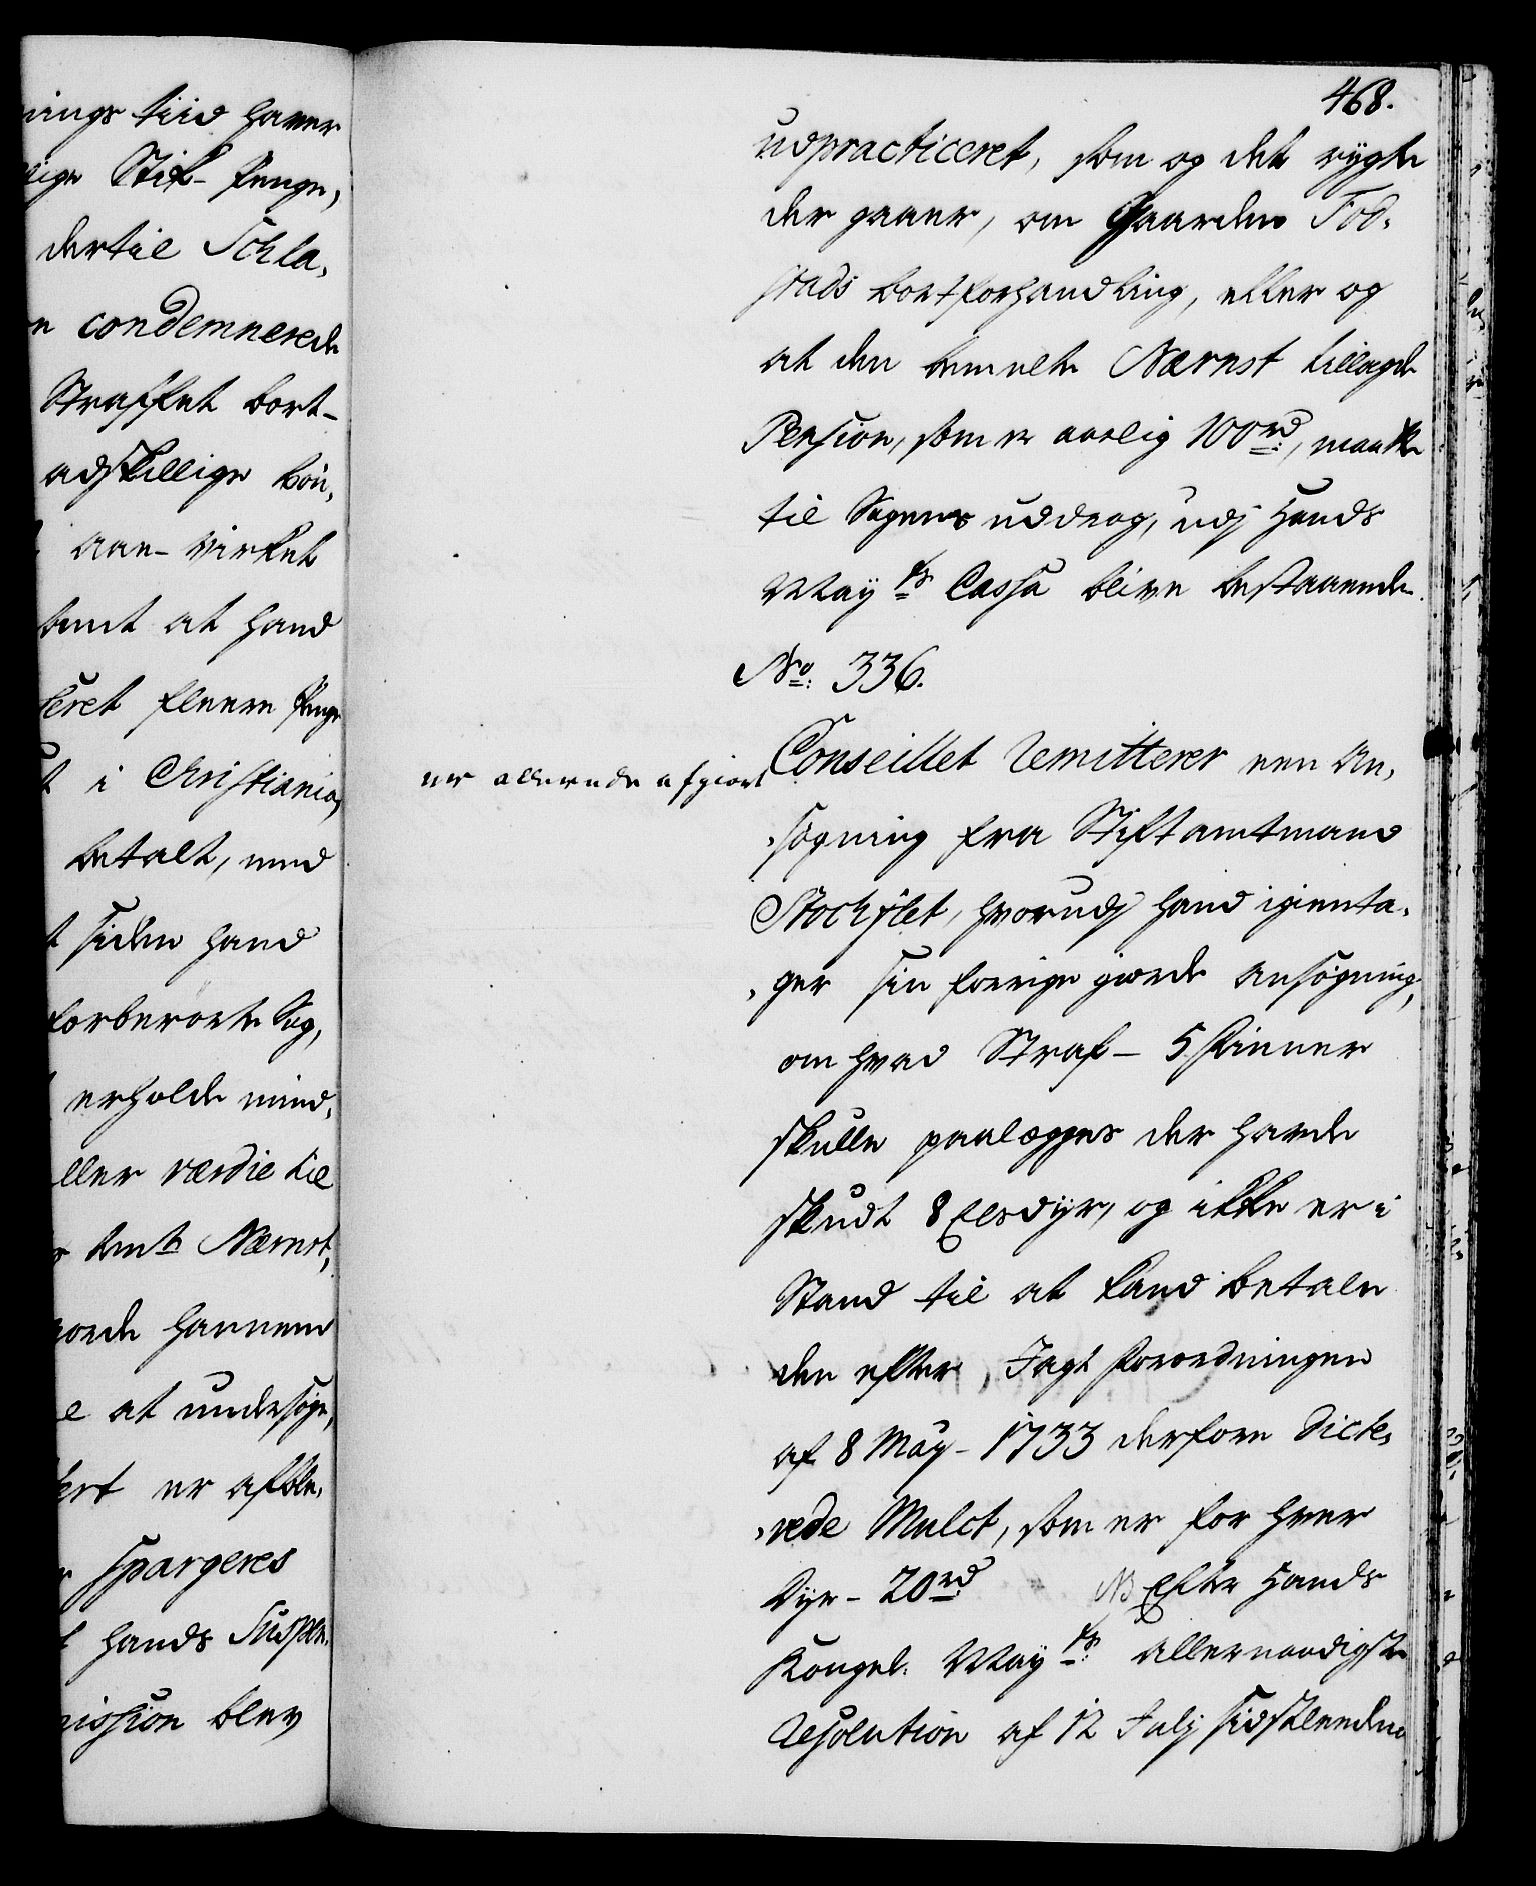 nings tiid haver
lige Stif- Penge,
dertil Schla,
n condemnerede
Straffet bort-
adskillige bön,
aan- virket
bemt at hand
ceret fleere Penge
t i Christiania,
betalt, med
t siden hand
forberörte Sag,
erholde mind,
eller værdie til
r bemte Nærnst,
giorde hannem
e at undersøge,
kert er afble,
r spargeres
t hands Suspen,
mission blev
468.
udpracticeret, som og det rygte
der gaaer, om Gaarden Fod,
stads bortforhandling, eller og
at den bemelte Nærnst tillagde
Pension, som er aarlig 100 rd:, maatte
til Sagens uddrag, udj Hands
May ts Cassa blive bestaaende.
No: 336.
er allerede afgiort
Conseillet remitterer een An,
,søgning fra Stiftamtmand
Stochflet, hvorudj hand igienta,
,ger sin forrige giorde ansøgning,
om hvad Straf- 5 Qvinner
skulle paalegges der havde
skudt 8 Elsdyr, og ikke er i
Stand til at kand betale
den efter Jagt forordningen
af 8 May- 1733 derfore Dicte,
,rede Mulct, som er for hver
Dyr- 20 rd: NB Efter Hands
Kongel. May ts: allernaadigste
resolution af 12 Julj sidstleeden